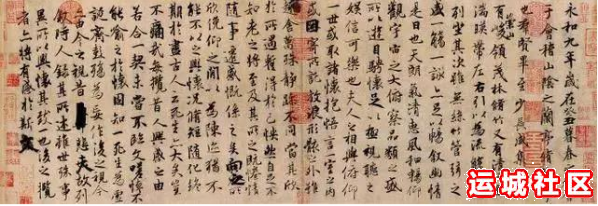 永和九年歲在癸丑暮春
于會稽山陰之蘭亭脩
也群賢畢至少長咸集
有崇山峻領茂林脩竹又有清
湍暎帶左右引以為流觴
列坐其次雖無絲竹管弦之
盛一觴一詠亦足以暢敘幽情
是日也天朗氣清惠風和暢仰
觀宇宙之大俯察品類之盛
所以遊目騁懷足以極視聽之
娛信可樂也夫人之相與俯仰
一世或取諸懷抱悟言一室之內
或因寄所託放浪形骸之外雖
趣舍萬殊靜躁不同當其欣
於所遇蹔得於己怏然自足不
知老之將至及其所之既惓情
隨事遷感慨係之矣向之所
欣俛仰之閒以為陳跡猶不
能不以之興懷況脩短隨化終
期於盡古人云死生亦大矣豈
不痛哉每攬昔人興感之由
若合一契未嘗不臨文嗟悼不
能喻之於懷固知一死生為虛
誕齊彭殤為妄作後之視今
亦由今之視昔悲夫故列
敘時人錄其所述雖世殊事
異所以興懷其致一也後之攬
者亦將有感於斯文
运城社区